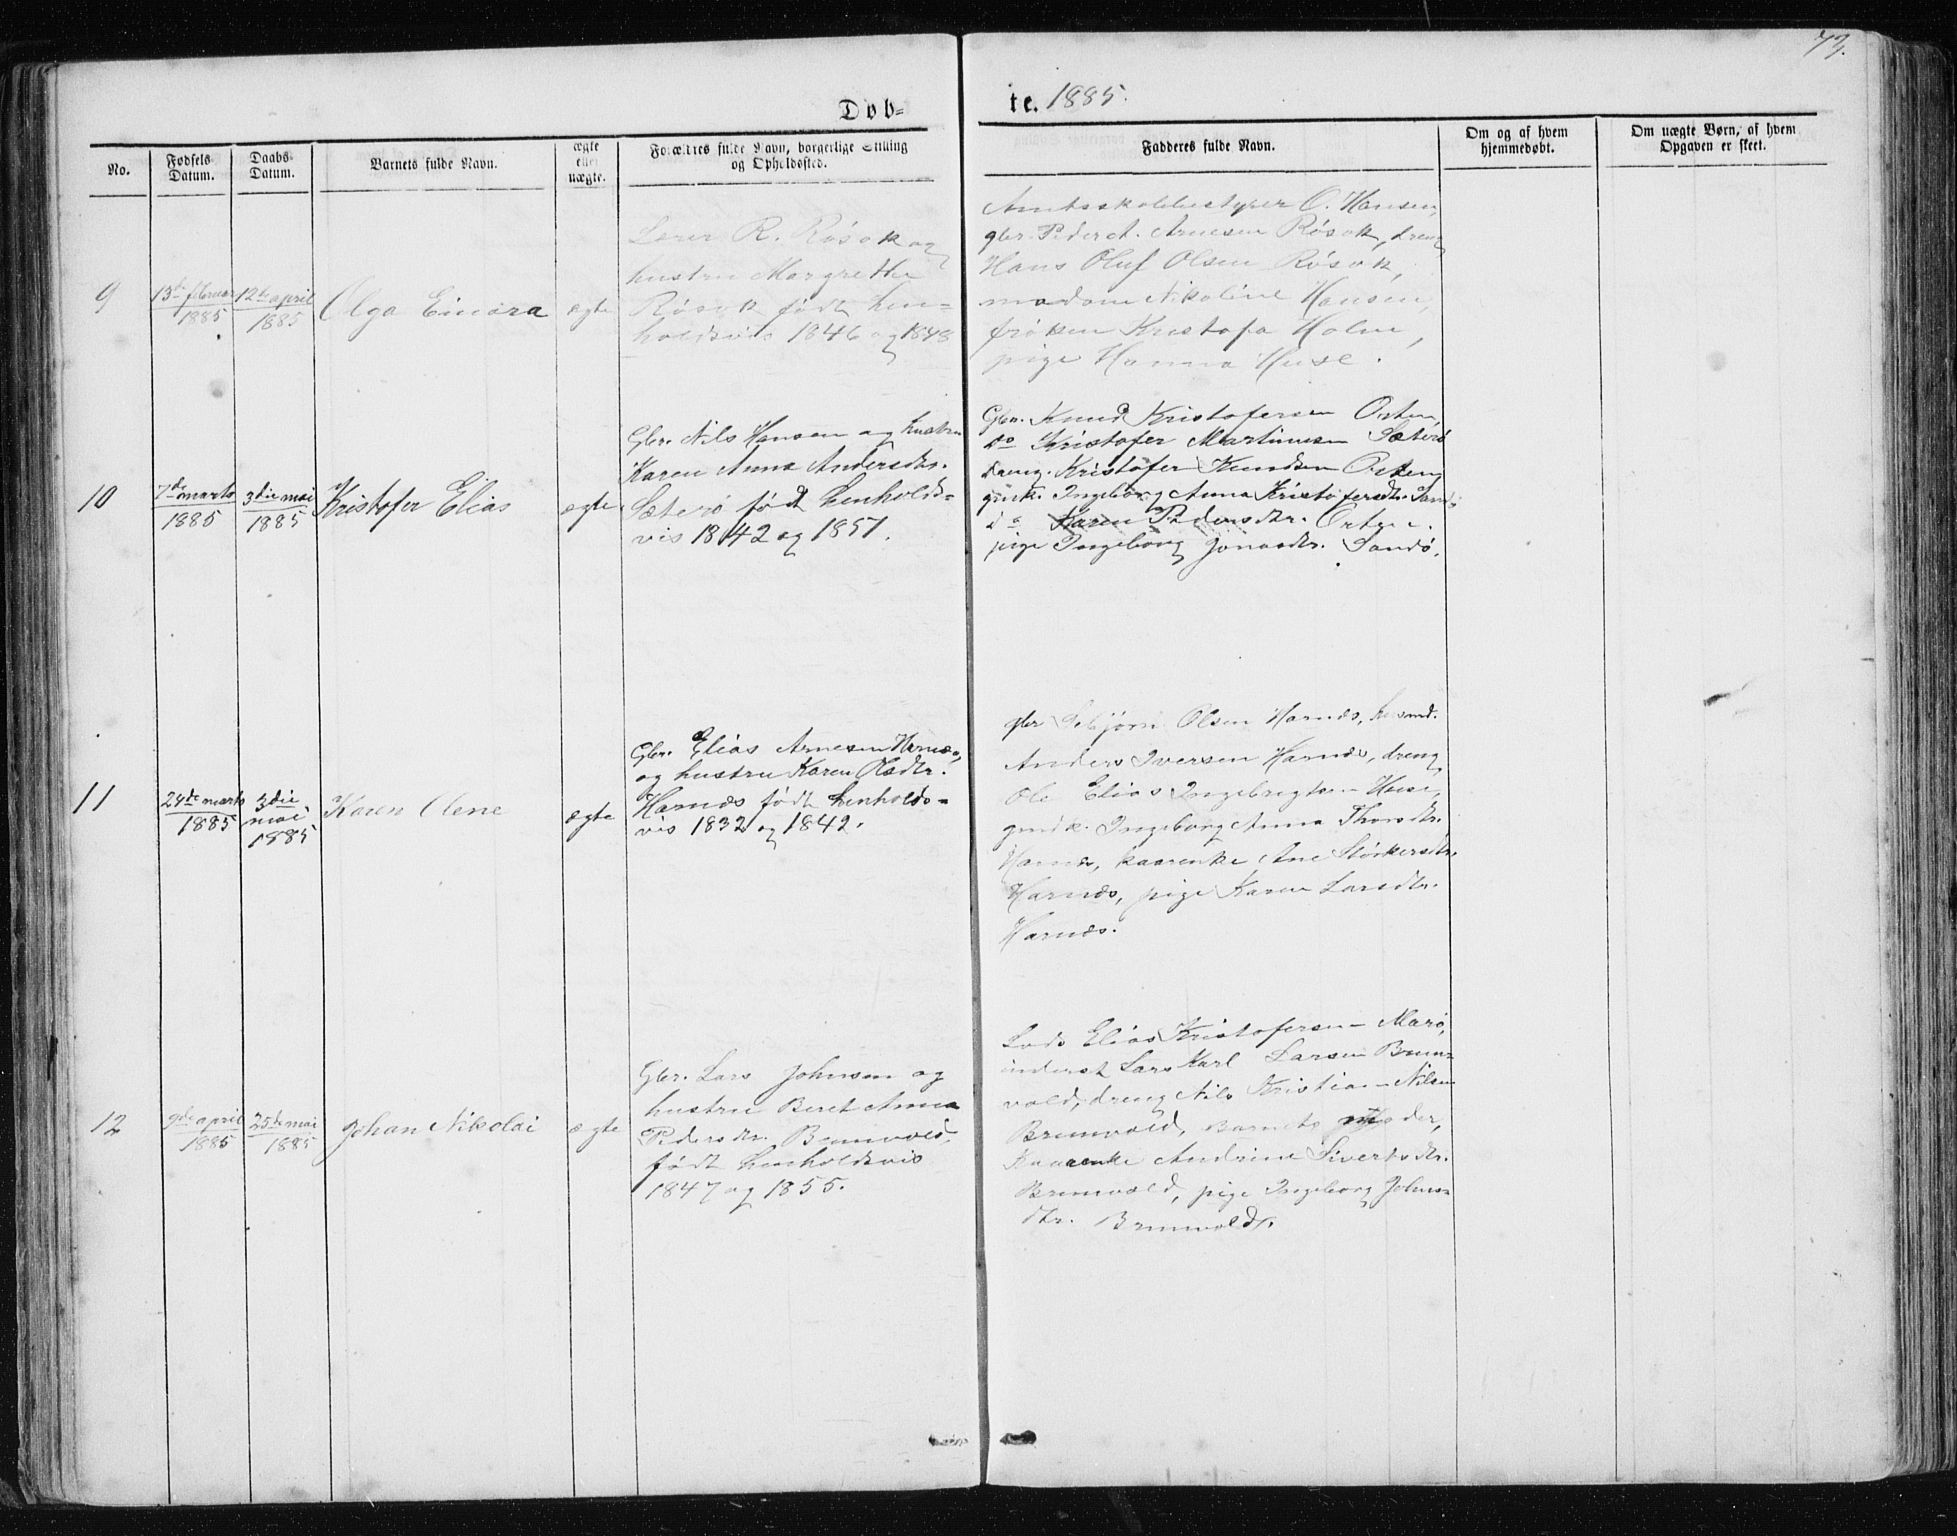 73.
Døb-
te. 1885.
No.
Fødsels Datum.
Daabs Datum.
Barnets fulde Navn.
ægte eller uægte.
Forældres fulde Navn, borgerlige Stilling og Opholdssted.
Fadderes fulde Navn.
Om og af hvem hjemmedøbt.
Om uægte Børn, af hvem Opgaven er skeet.
9
13de februar
1885
12te april
1885
Olga Einara
ægte
Lærer R. Røsok og
hustru Margrethe
Røsok født hen=
holdsvis 1846 og 1848
Amtsskolebestyrer O. Hansen,
gbr. Peder A. Arnesen Røsok, dreng
Hans Oluf Olsen Røsok,
madam Nikoline Hansen,
frøken Kristofa Holm,
pige Hanna Huse.
10
7de marts
1885
3die mai
1885
Kristofer Elias
ægte
Gbr. Nils Hansen og hustru
Karen Anna Andersdtr.
Sæterø født henholds=
vis 1842 og 1851.
Gbr. Knud Kristofersen Orten,
do Kristofer Martinusen Sæterø
dreng. Kristofer Knudsen Orten
gmk. Ingeborg Anna Kristofersdtr. Sandø
do Karen Pedersdtr. Orten.
pige Ingeborg Jonasdtr. Sandø.
11
24de marts
1885
3die
mai
1885
Karen Olene
ægte
Gbr. Elias Arnesen Harnæs,
og hustru Karen Olsdtr.
Harnæs født henholds=
vis 1832 og 1842.
gbr Olsen Harnæs, husmd.
Anders Iversen Harnæs, dreng
Ole Elias Ingebrigtsen Huse,
gmk. Ingeborg Anna Thorsdtr.
Harnæs, kaarenke Ane Størkersdtr.
Harnæs, pige Karen Larsdtr.
Harnæs.
12
9de april
1885
25de mai
1885
Johan Nikolai
ægte
Gbr. Lars Johnsen og
hustru Beret Anna
Pedersdtr. Brunvold,
født henholdsvis
1847 og 1855.
Lods Elias Kristofersen Marø,
inderst Lars Karl Larsen Brun=
vold, dreng Nils Kristian Nilsen
Brunvold, Barnets moder,
Kaarenke Andrine Sivertsdtr.
Brunvold, pige Ingeborg Johns=
dtr. Brunvold.